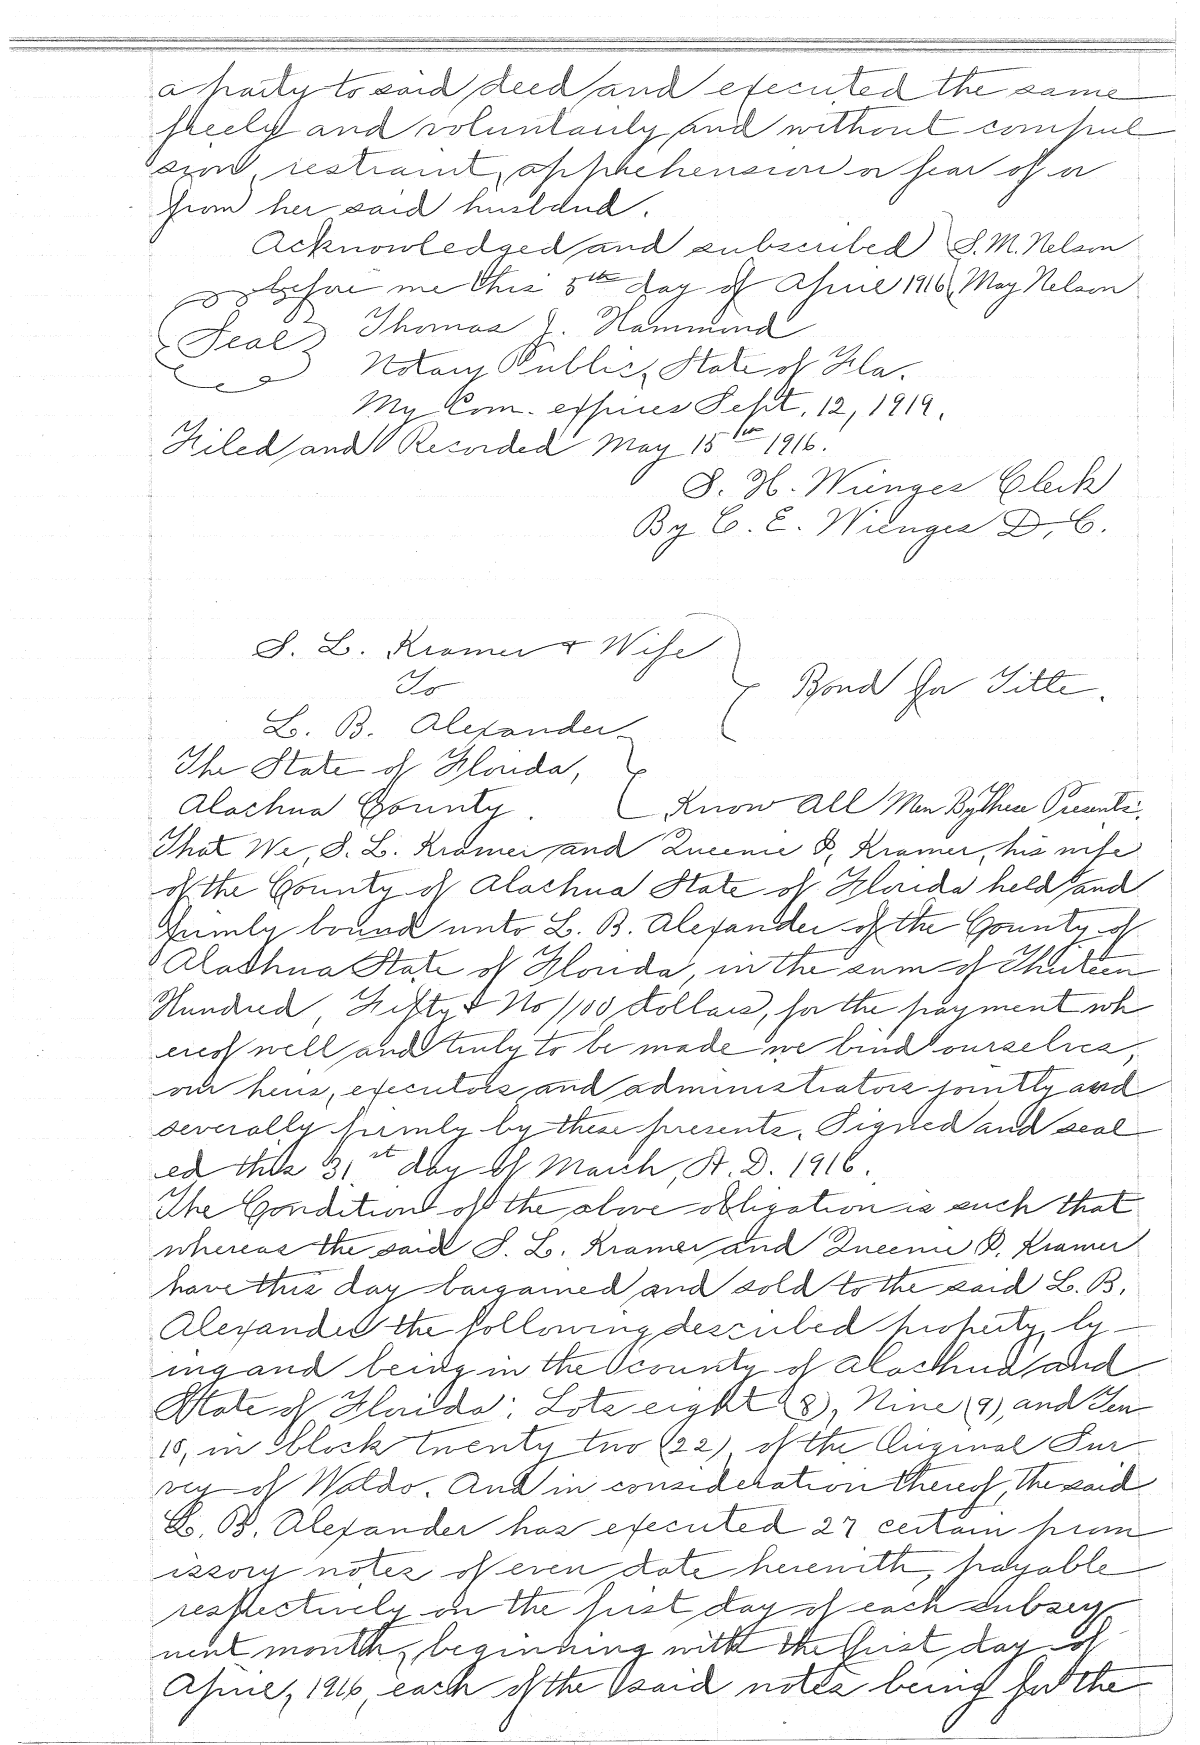 a party to said deed and executed the same
freely and voluntarily and without compul
sion, restraint, apprehension or fear of or
from her said husband.
Acknowledged and subscribed } S. M. Nelson
before me this 5th day of April 1916 } May Nelson
(Seal) Thomas J. Hammond
Notary Public, State of Fla.
My Com. expires Sept. 12, 1919.
Filed and Recorded May 15th 1916.
S. H. Wienges Clerk
By C. E. Wienges D. C.
S. L. Kramer & Wife
To } Bond for Title.
L. B. Alexander
The State of Florida, }
Alachua County. } Know All Men By These Presents:
That We, S. L. Kramer and Queenie P. Kramer, his wife
of the County of Alachua State of Florida held and
firmly bound unto L. B. Alexander of the County of
Alachua State of Florida, in the sum of Thirteen
Hundred, Fifty & No/100 dollars, for the payment wh
ereof well and truly to be made we bind ourselves,
our heirs, executors and administrators jointly and
severally firmly by these presents. Signed and seal
ed this 31st day of March, A. D. 1916.
The Condition of the above obligation is such that
whereas the said S. L. Kramer and Queenie P. Kramer
have this day bargained and sold to the said L. B.
Alexander the following described property, ly-
ing and being in the county of Alachua and
State of Florida: Lots eight (8), Nine (9), and Ten
10, in block twenty two (22), of the Original Sur
vey of Waldo. And in consideration thereof, the said
L. B. Alexander has executed 27 certain prom
issory notes of even date herewith, payable
respectively on the first day of each subseq
uent month, beginning with the first day of
April, 1916, each of the said notes being for the